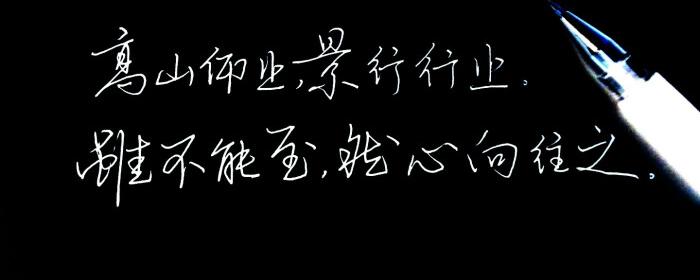 高山仰止,景行行止.
雖不能至,然心向往之.